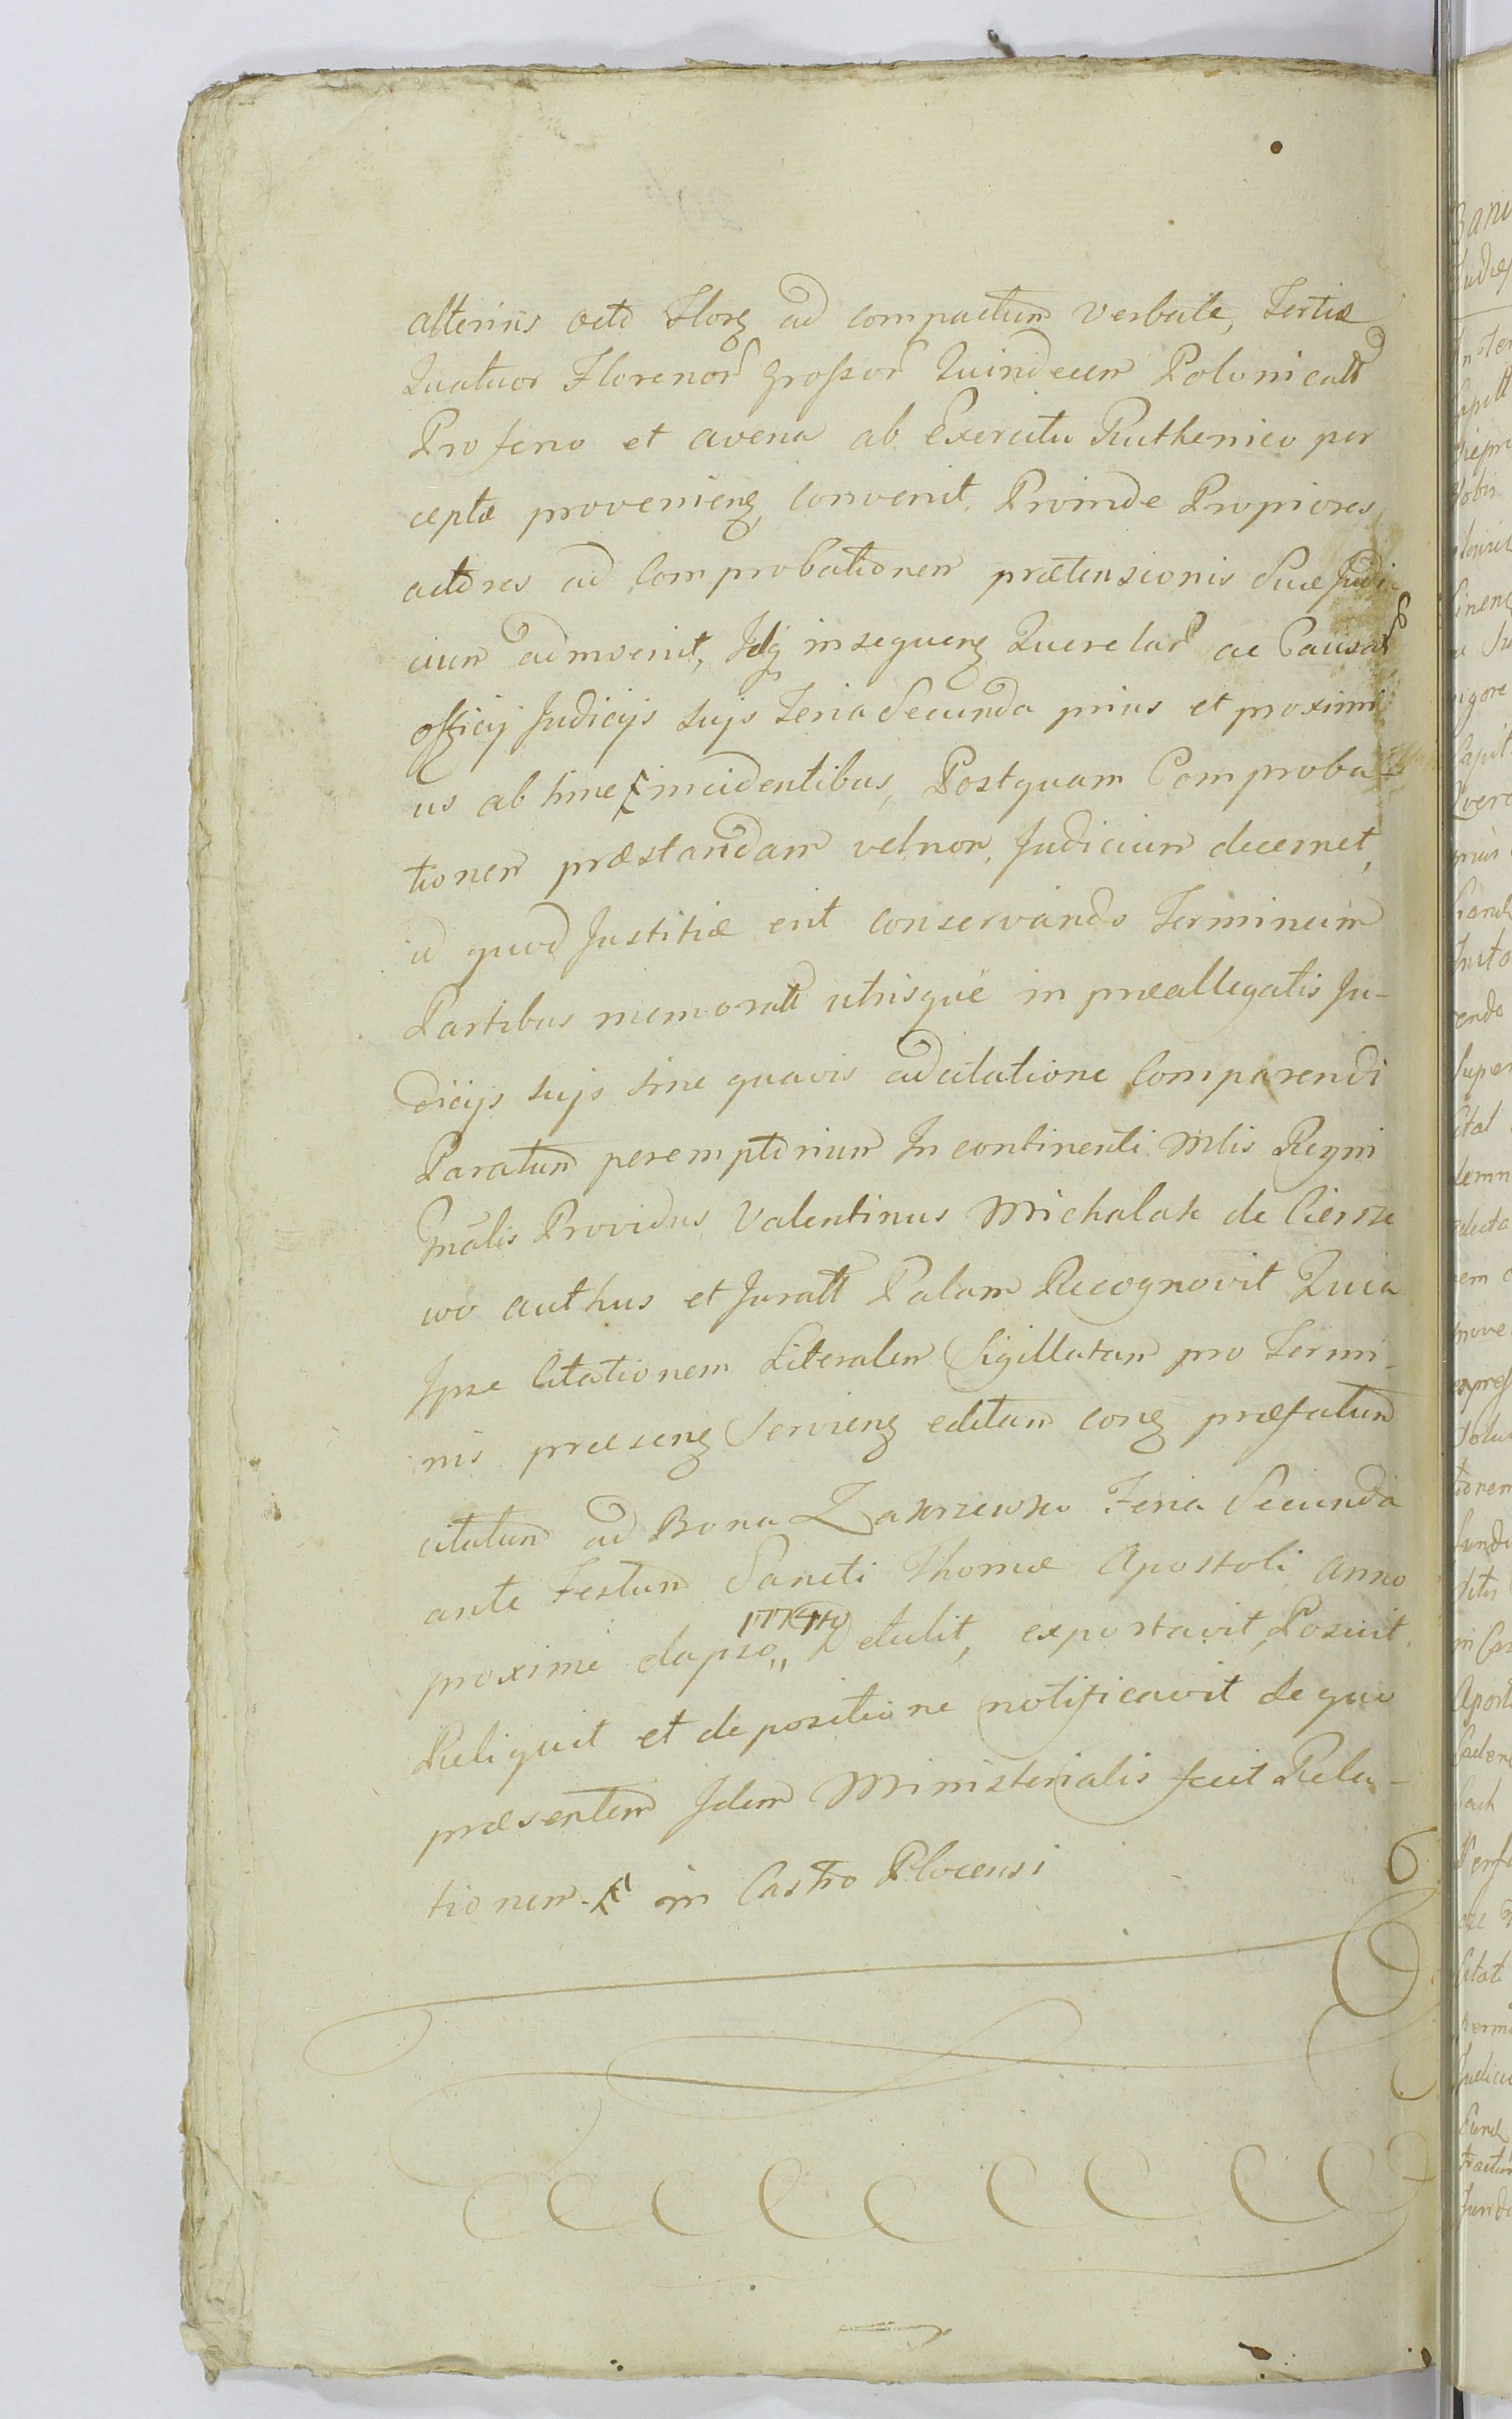 alterius octo Floreñ ad compactum verbale, Tertiæ
Quatuor Florenor Grossor Quindecem Polonicall
Pro feno et avena ab Exercitu Ruthenico per
ceptæ provenieñ convenit, Proinde Propiores
actores ad Comprobationem prætensionis Suæ Judi
cium adinvenit, Idq insequeñ Querelar ac Causar
officij Judicijs sujs Feria Secunda prius et proximi
us ab hinc incidentibus, Postquam Comproba-
tionem præstandam vel non, Judicium decernet,
id quod Justitiæ erit conservando Terminum
Partibus memoratt utrisque in præallegatis Ju-
dicijs sujs sine quavis adcitatione Comparendi
Paratum peremptorium In continenti Mlis Regni
Gnãlis Providus Valentinus Michalak de Ciersze
wo authus et Juratt Palam Recognovit Quia
Ipse Citationem Literalem Sigillatam pro Termi-
nis præseñ Servieñ editam coñ præfatum
citatum ad Bona Zakrzewko Feria Secunda
ante Festum Sancti Thomæ Apostoli anno
proxime elapso,, Detulit, exportavit, Posuit,
Reliquit et de positione notificavit de quo
præsentem Idem Ministerialis fecit Rela-
tionem. in Castro Plocensi